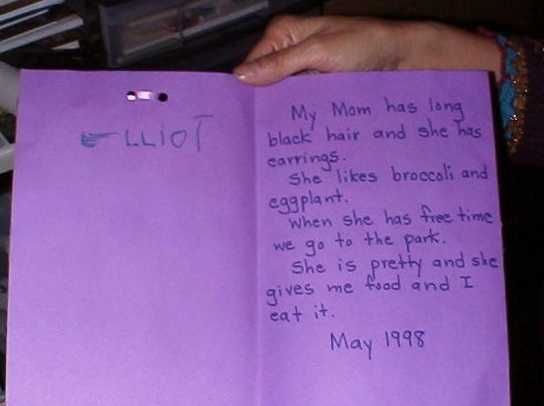 ELLIOT
My Mom has long
black hair and she has
earrings.
She likes broccoli and
eggplant.
When she has free time
we go to the park.
She is pretty and she
gives me food and I
eat it.
May 1998